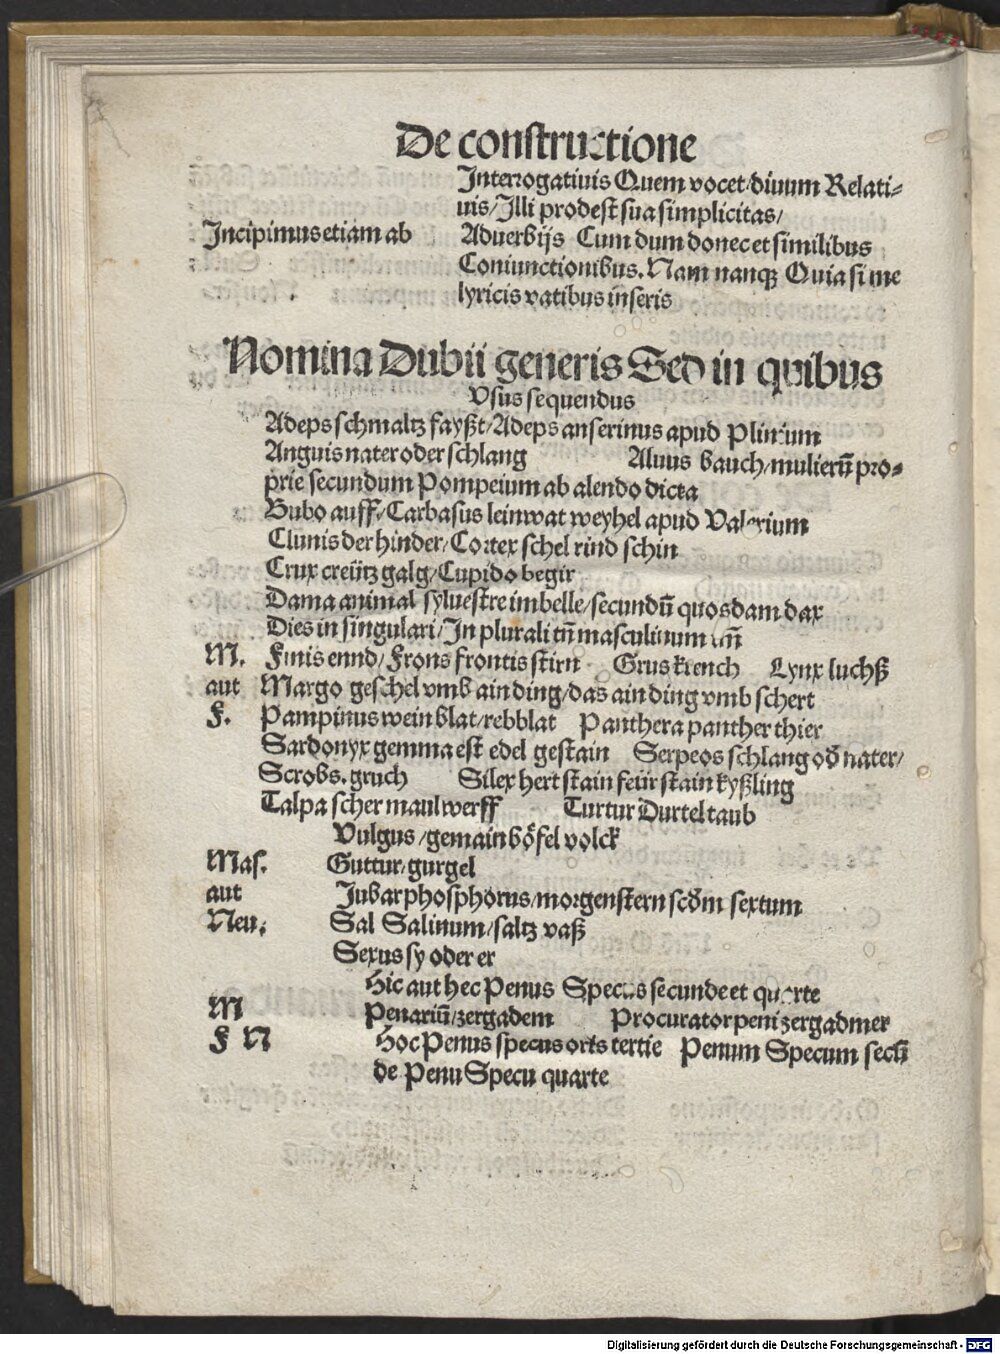 De constructione
Interrogatiuis Quem vocet/diuum Relati-
uis/Illi prodest sua simplicitas/
Incipimus etiam ab Aduerbijs Cum dum donec et similibus
Coniunctionibus. Nam nanqꝫ Quia si me
lyricis vatibus inseris
Nomina Dubii generis Sed in quibus
Vsus sequendus
Adeps schmaltz fayßt/Adeps anserinus apud Plinium
Anguis nater oder schlang Aluus bauch/mulierū pro-
prie secundum Pompeium ab alendo dicta
Bubo auff/Carbasus leinwat weyhel apud Valerium
Clunis der hinder/Cortex schel rind schin
Crux creütz galg/Cupido begir
Dama animal syluestre imbelle/secundū quosdam dax
Dies in singulari/In plurali tñ masculinum
M. Finis ennd/Frons frontis stirn Grus krench Lynx luchß
aut Margo geschel vmb ain ding/das ain ding vmb schert
F. Pampinus wein blat/rebblat Panthera panther thier
Sardonyx gemma est edel gestain Serpeos schlang od̄ nater/
Scrobs. gruch Silex hert stain feür stain kyßling
Talpa scher maulwerff Turtur Durteltaub
Vulgus/gemain böfel volck
Mas. Guttur/gurgel
aut Jubar phosphorus/morgenstern scd̄m sextum
Neu. Sal Salinum/saltz vaß
Sexus sy oder er
Hic aut hec Penus Specus secunde et quarte
M Penariū/zergadem Procurator peni zergadmer
F N Hoc Penus specus oris tertie Penum Specum secū
de Penu Specu quarte
Digitalisierung gefördert durch die Deutsche Forschungsgemeinschaft - DFG